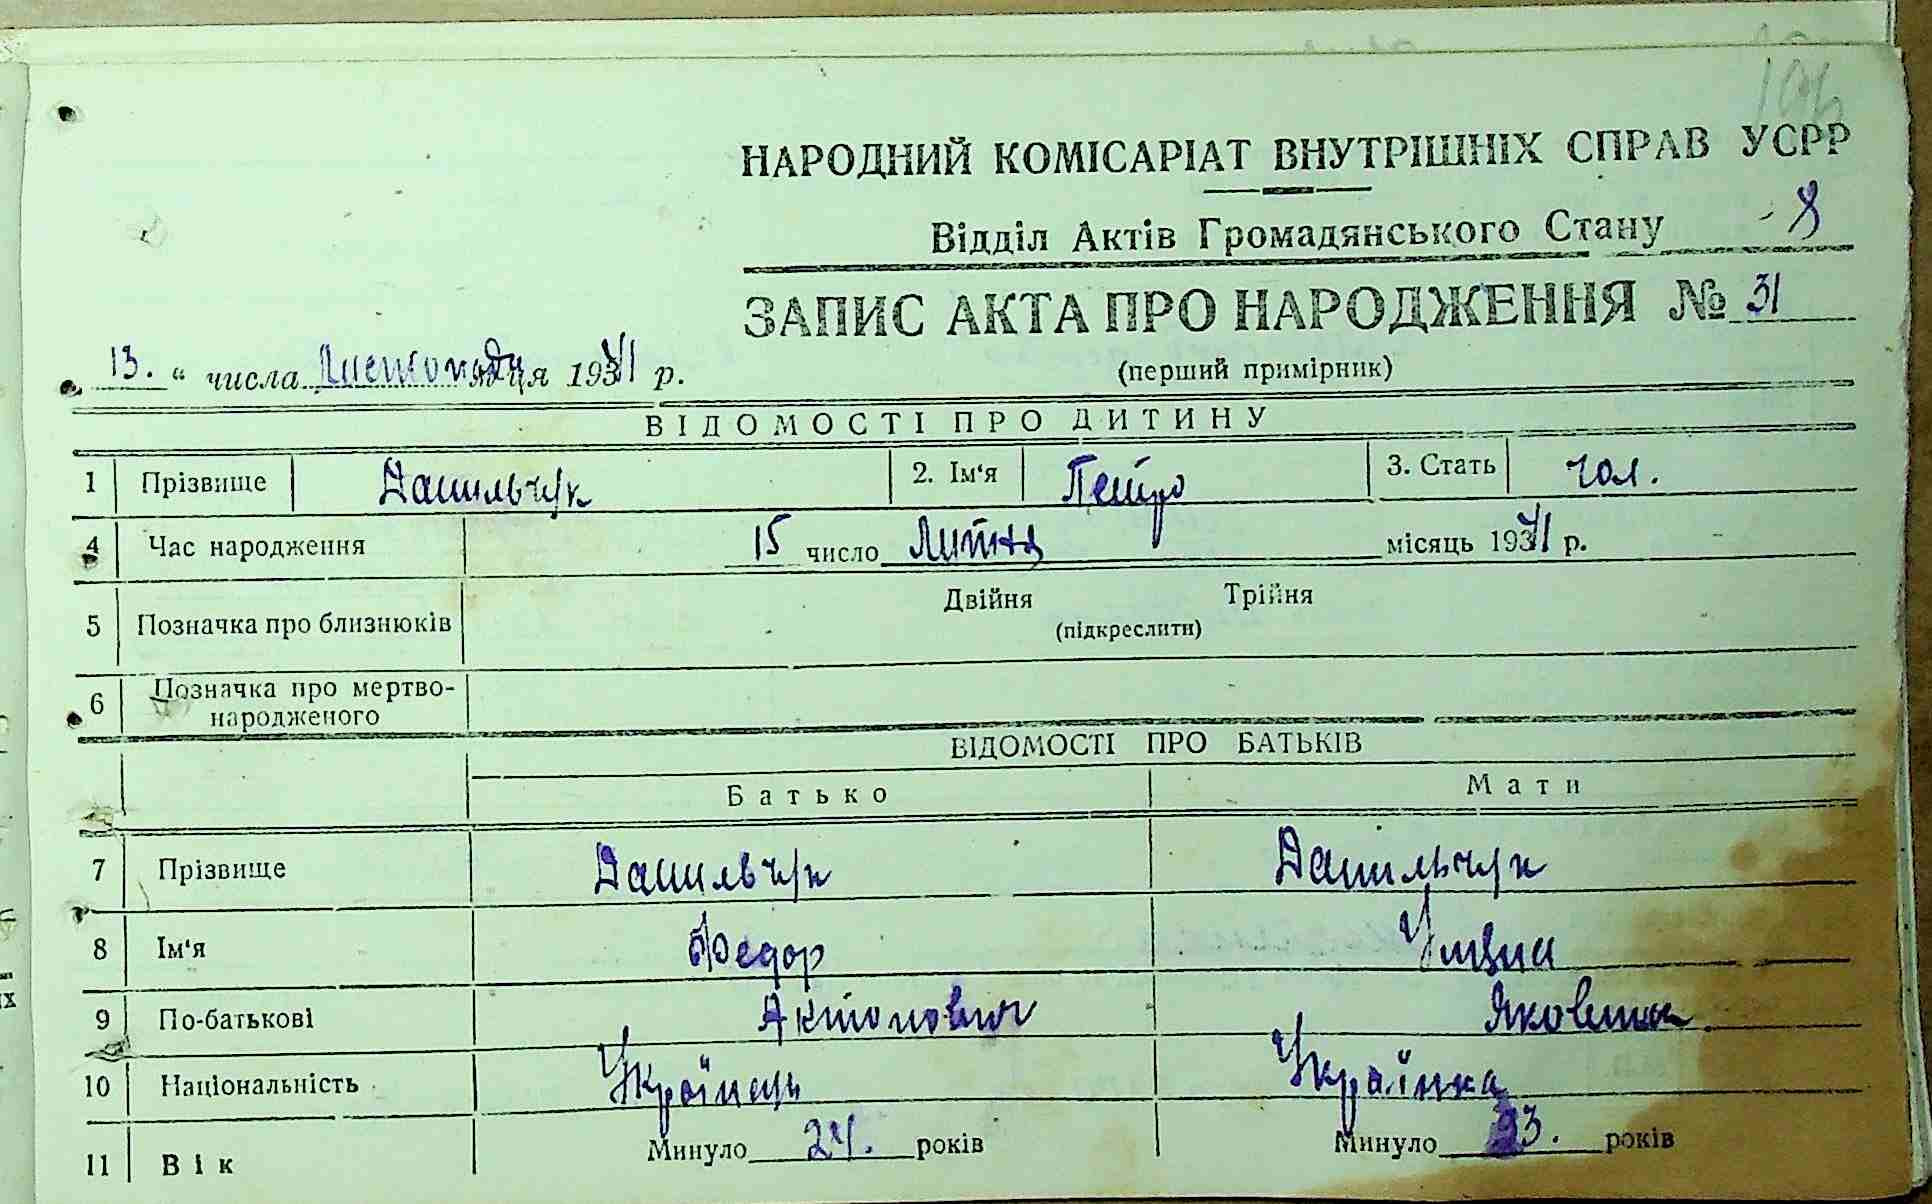 106
НАРОДНИЙ КОМІСАРІАТ ВНУТРІШНІХ СПРАВ УСРР
Відділ Актів Громадянського Стану 8
ЗАПИС АКТА ПРО НАРОДЖЕННЯ № 31
13. " числа Листопада м-ця 1941 р.
(перший примірник)
ВІДОМОСТІ ПРО ДИТИНУ
1 Прізвище Данильчук 2. Ім'я Петро 3. Стать чол.
4 Час народження 15 число Липня місяць 1941 р.
5 Позначка про близнюків Двійня Трійня
(підкреслити)
6 Позначка про мертво-
народженого
ВІДОМОСТІ ПРО БАТЬКІВ
Батько Мати
7 Прізвище Данильчук Данильчук
8 Ім'я Федор
9 По-батькові
10 Національність Українець Українка
11 Вік Минуло 24. років Минуло 23. років